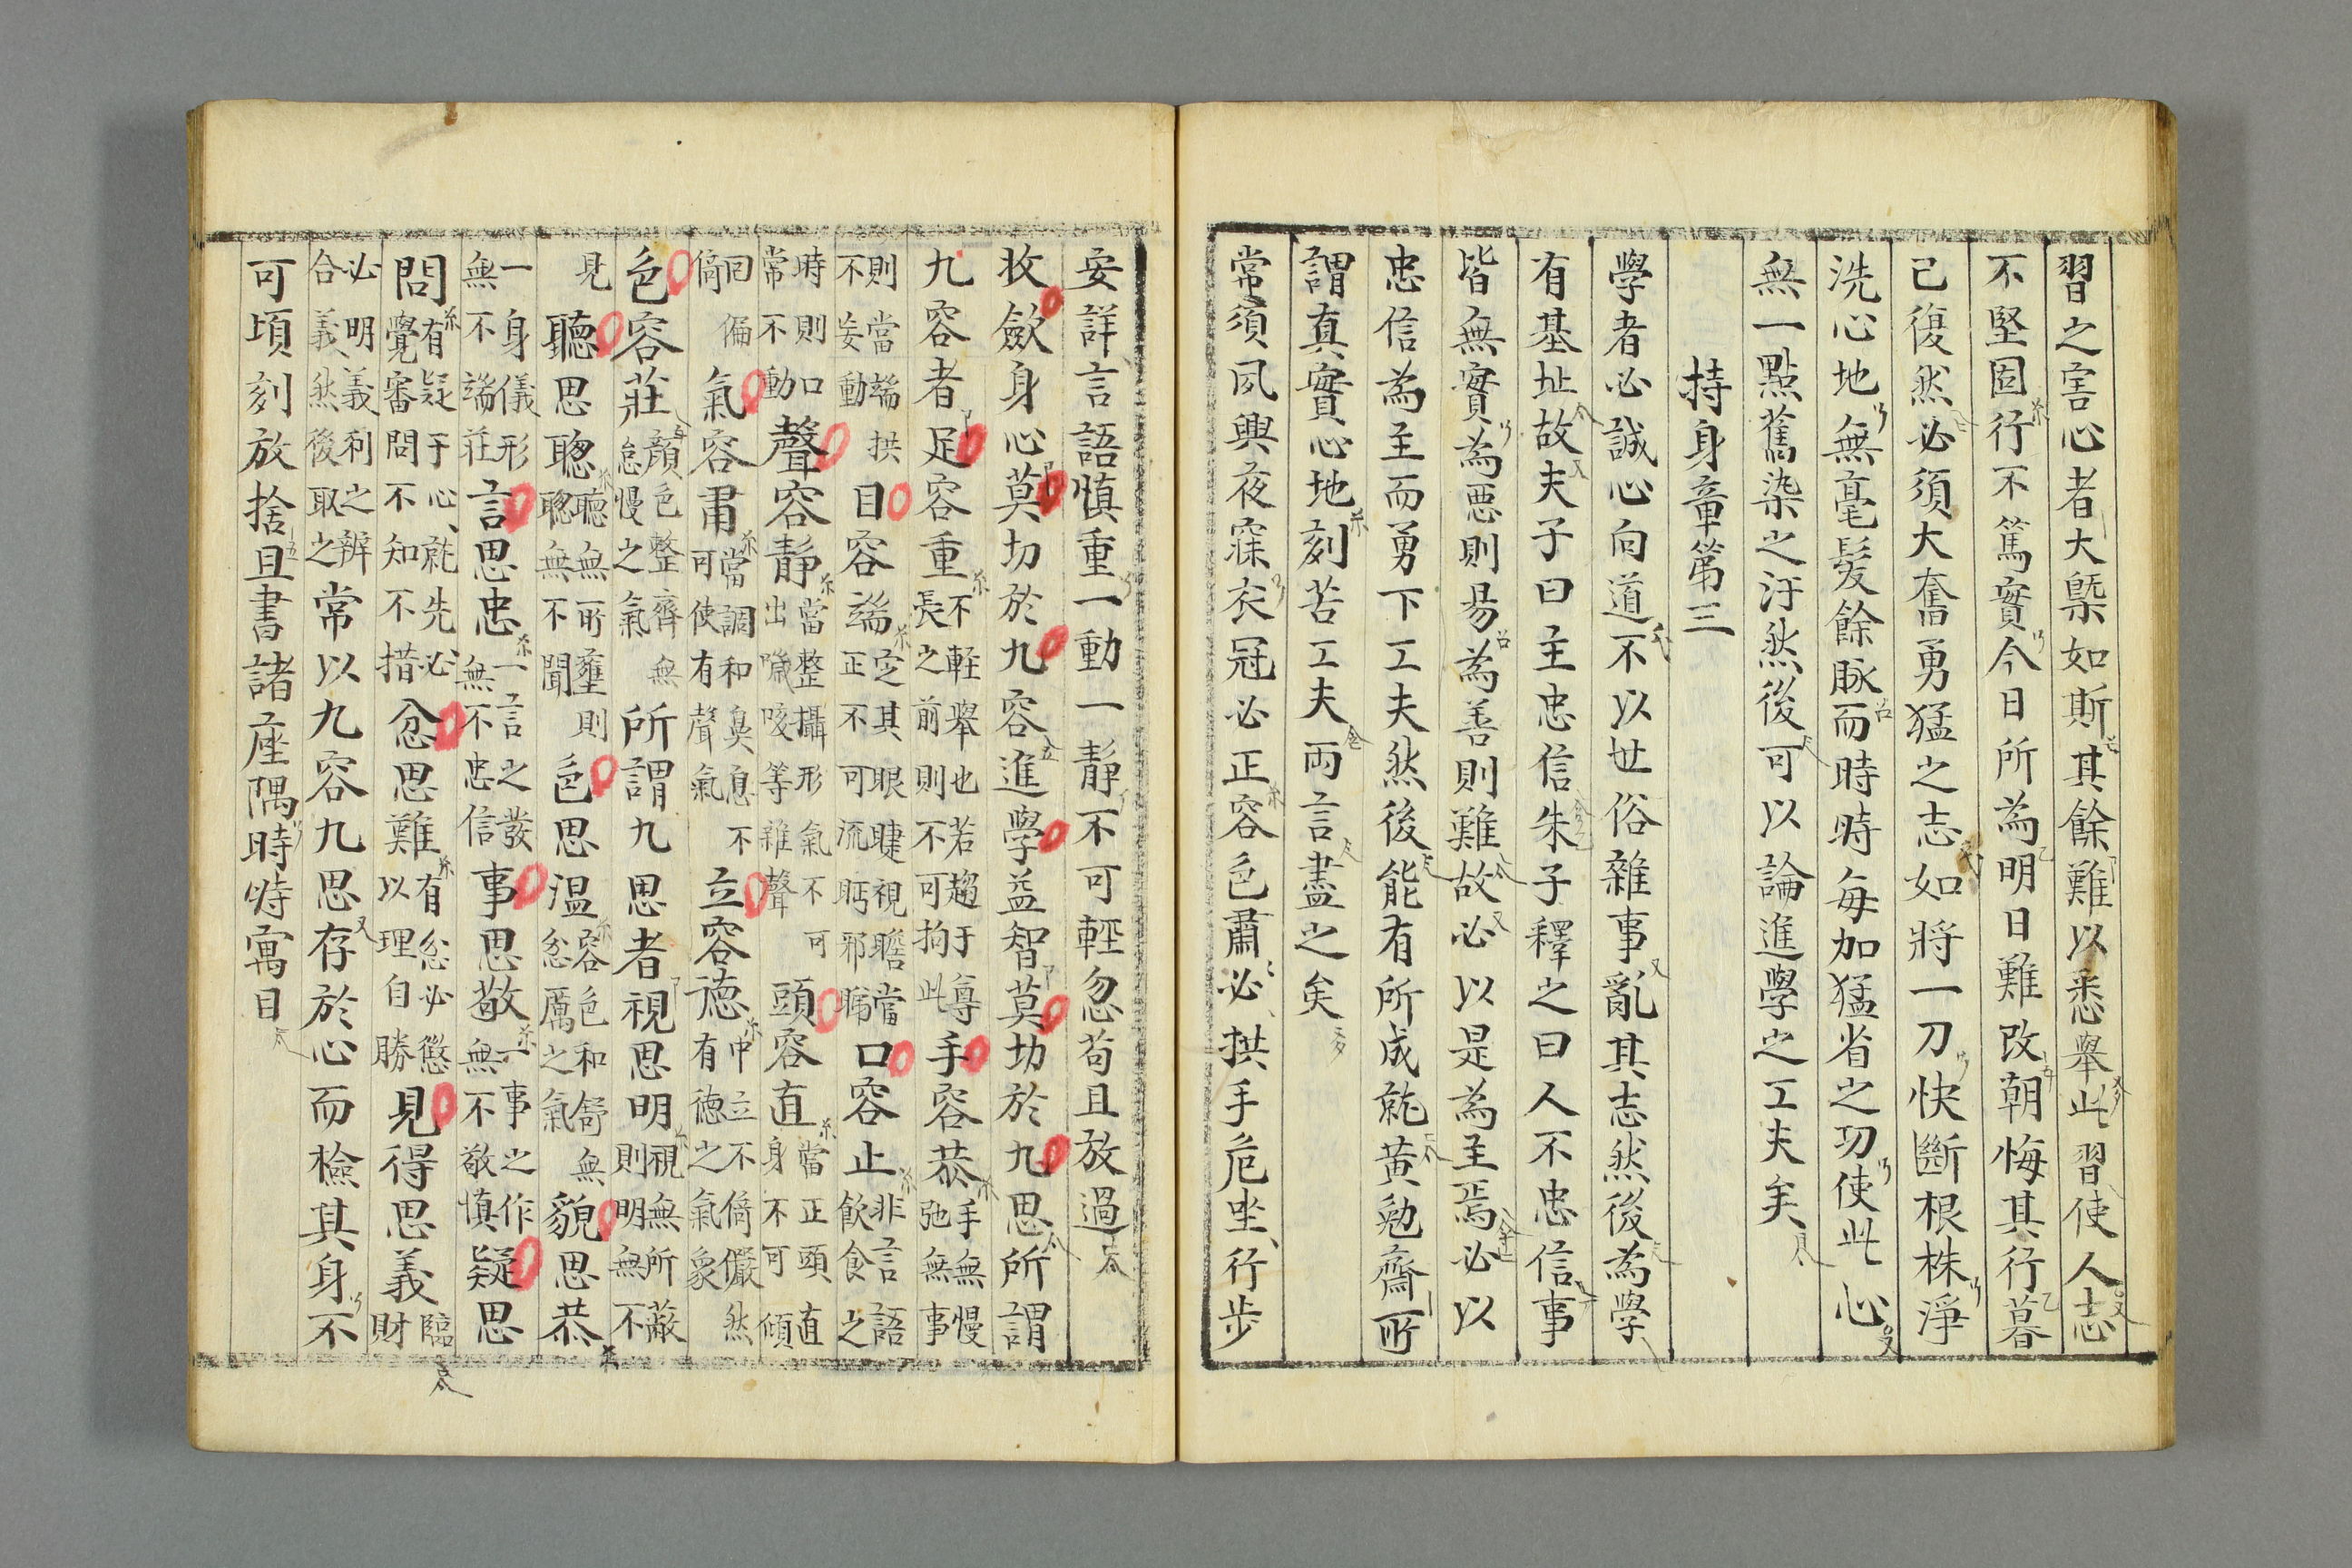 習之害心者大槩如斯其餘難以悉擧此習使人志
不堅固行不篤實今日所為明日難改朝悔其行暮
已復然必須大奮勇猛之志如將一刀快斷根株淨
洗心地無毫髮餘脉而時時每加猛省之功使此心
無一點舊染之汙然後可以論進學之工夫矣
持身章第三
學者必誠心向道不以世俗雜事亂其志然後為學
有基址故夫子曰主忠信朱子釋之曰人不忠信事
皆無實為惡則易為善則難故必以是為主焉必以
忠信為主而勇下工夫然後能有所成就黃勉齋所
謂真實心地刻苦工夫兩言盡之矣
常須夙興夜寐衣冠必正容色肅必拱手危坐行步
安詳言語慎重一動一靜不可輕忽苟且放過
收斂身心莫切於九容進學益智莫切於九思所謂
九容者足容重不輕擧也若趨于尊長之前則不可拘此手容恭手無慢弛無事
則當端拱不妄動目容端定其眼睫視瞻當正不可流眄邪睇口容止非言語飮食之
時則口常不動聲容靜當整攝形氣不可出噦咳等雜聲頭容直當正頭直身不可傾
回偏倚氣容肅當調和鼻息不可使有聲氣立容德中立不倚儼然有德之氣象
色容莊顏色整齊無怠慢之氣所謂九思者視思明視無所蔽則明無不
見聽思聰聽無所壅則聰無不聞色思溫容色和舒無忿厲之氣貌思恭
一身儀形無不端莊言思忠一言之發無不忠信事思敬一事之作無不敬慎疑思
問有疑于心就先必覺審問不知不措忿思難有忿必懲以理自勝見得思義臨財
必明義利之辨合義然後取之常以九容九思存於心而檢其身不
可頃刻放捨且書諸座隅時時寓目